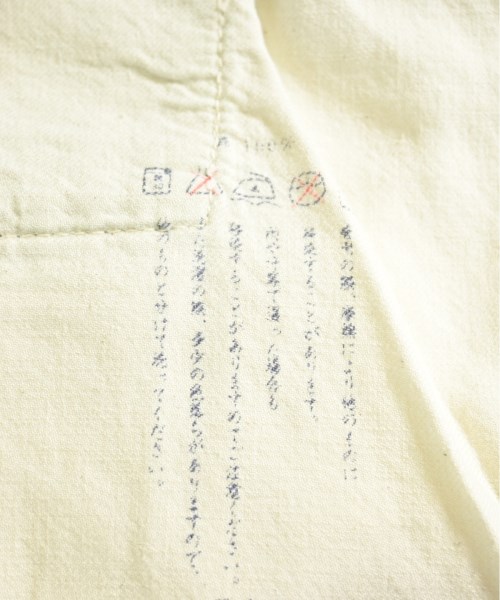 綿 100%
着用の際、摩擦により他のものに
移染することがあります。
雨や汗等で湿った場合も
移染することがありますのでご注意ください。
また洗濯の際、多少の色落ちがありますので、
他のものと分けて洗ってください。